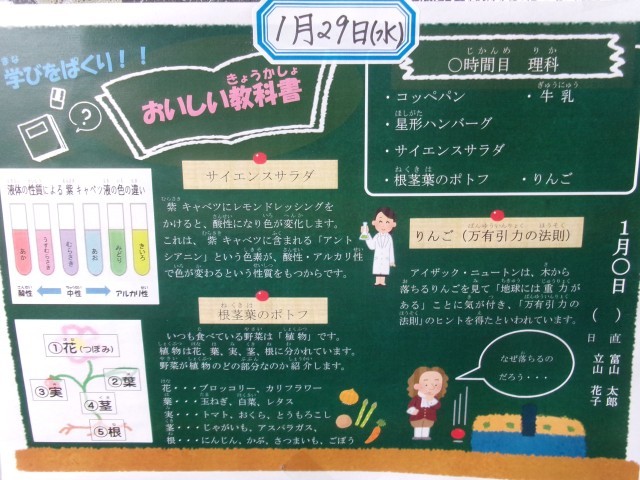 1月29日(水)
学びをぱくり！！
おいしい教科書
〇時間目　理科
・コッペパン　・牛乳
・星形ハンバーグ
・サイエンスサラダ
・根茎葉のポトフ　・りんご
サイエンスサラダ
紫キャベツにレモンドレッシングを
かけると、酸性になり色が変化します。
これは、紫キャベツに含まれる「アント
シアニン」という色素が、酸性・アルカリ性
で色が変わるという性質をもつからです。
液体の性質による紫キャベツ液の色の違い
あか　うすむらさき　むらさき　あお　みどり　きいろ
酸性　中性　アルカリ性
りんご（万有引力の法則）
アイザック・ニュートンは、木から
落ちるりんごを見て「地球には重力が
ある」ことに気が付き、「万有引力の
法則」のヒントを得たといわれています。
根茎葉のポトフ
いつも食べている野菜は「植物」です。
植物は花、葉、実、茎、根に分かれています。
野菜が植物のどの部分なのか紹介します。
花・・・ブロッコリー、カリフラワー
葉・・・玉ねぎ、白菜、レタス
実・・・トマト、おくら、とうもろこし
茎・・・じゃがいも、アスパラガス、
根・・・にんじん、かぶ、さつまいも、ごぼう
①花(つぼみ)
②葉
③実
④茎
⑤根
なぜ落ちるの
だろう・・・
1月〇日（　）
直　富山　太郎
日　立山　花子